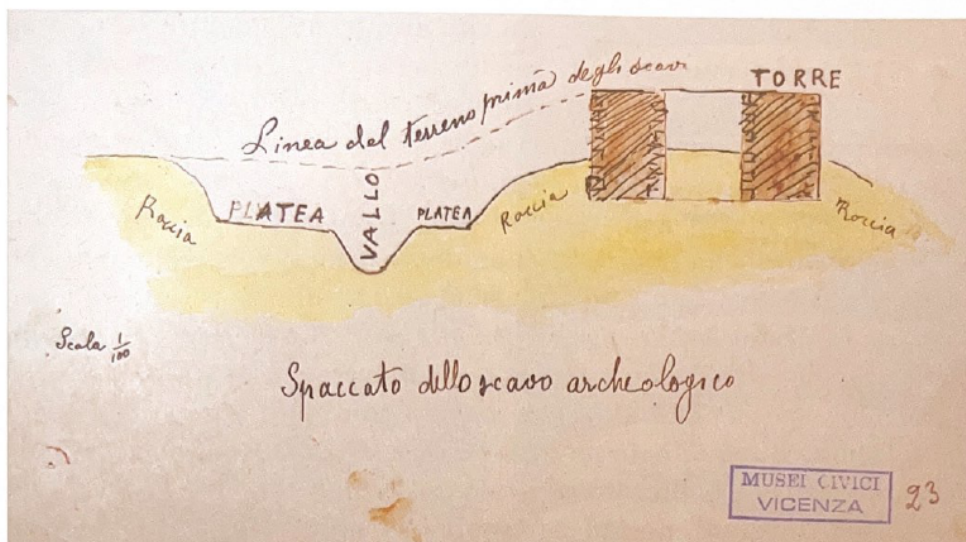 Linea del terreno prima degli scavi
TORRE
Roccia
PLATEA
VALLO
PLATEA
Roccia
Roccia
Scala 1/100
Spaccato dello scavo archeologico
MUSEI CIVICI
VICENZA
23